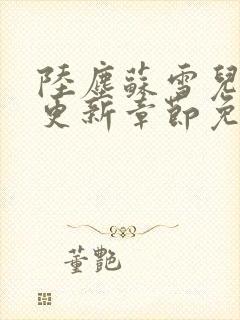 陸塵蘇雪兒
更新章節免
董艷